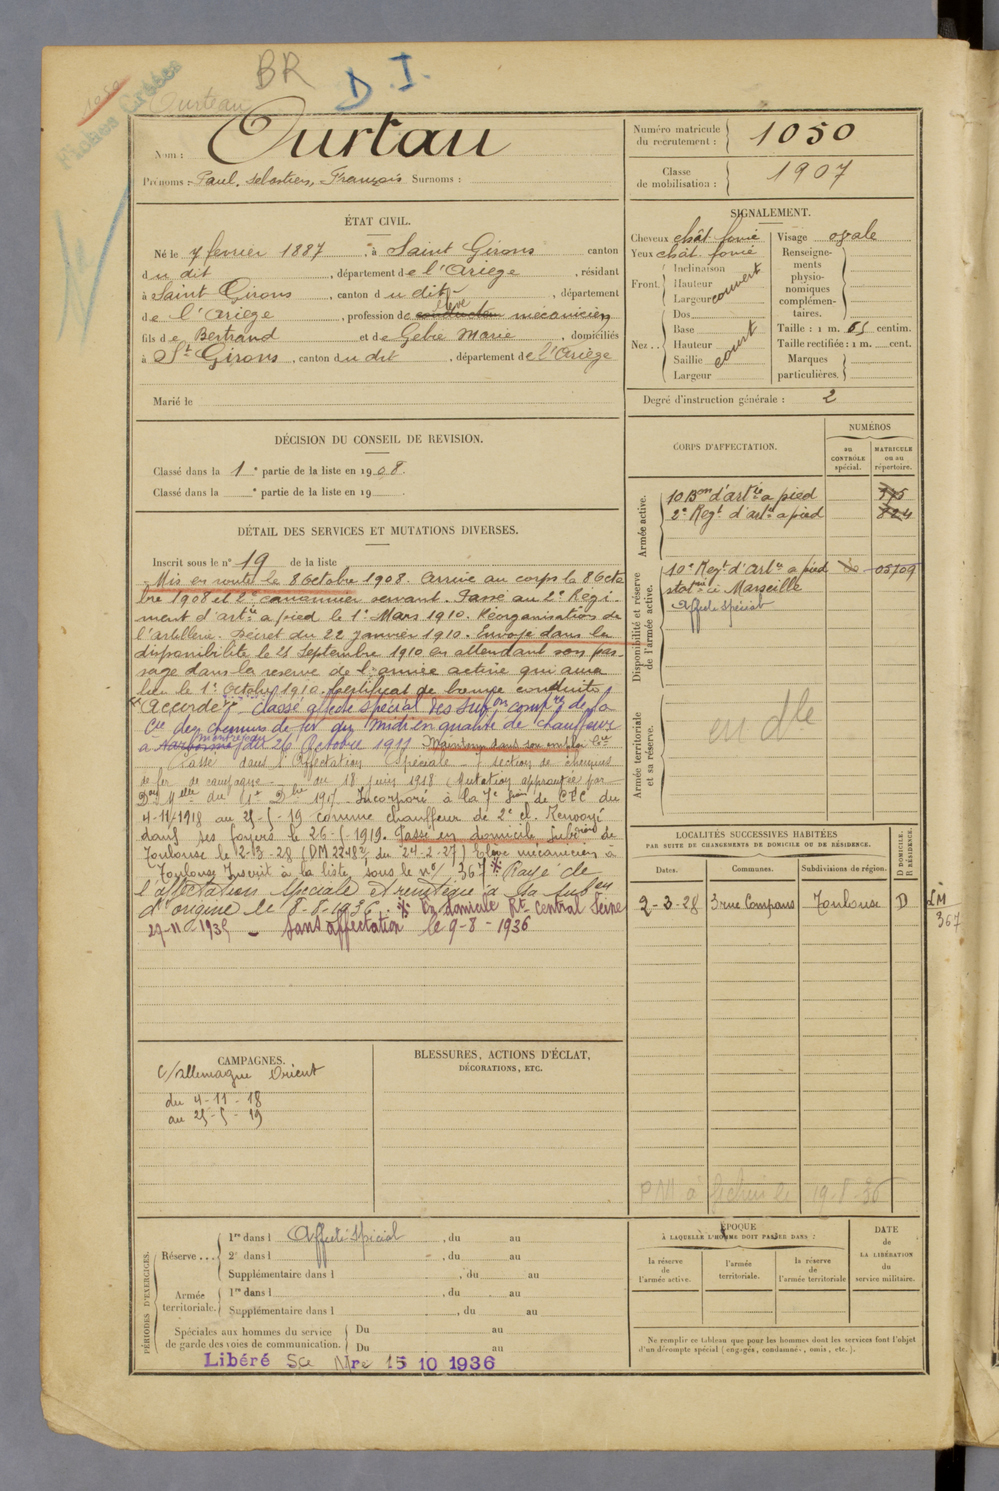 BR
D.I.
1050
Fiches Créées
Ourteau
Nom : Ourtau
Prénoms : Paul, Sébastien, François Surnoms :
Numéro matricule du recrutement : 1050
Classe de mobilisation : 1907
ÉTAT CIVIL.
Né le 7 février 1887, à Saint Girons canton
du dit, département de l'Ariège, résidant
à Saint Girons, canton du dit, département
de l'Ariège, profession de conducteur élève mécanicien
fils de Bertrand et de Gebre Marie, domiciliés
à St Girons, canton du dit, département de l'Ariège
Marié le
SIGNALEMENT.
Cheveux chât. foncé
Yeux chât. foncé
Front. Inclinaison
Hauteur
Largeur
couvert
Nez .. Dos
Base
Hauteur
Saillie
Largeur
court
Visage ovale
Renseignements physionomiques complémentaires.
Taille : 1 m. 65 centim.
Taille rectifiée : 1 m. cent.
Marques particulières.
Degré d'instruction générale : 2
DÉCISION DU CONSEIL DE REVISION.
Classé dans la 1e partie de la liste en 1908.
Classé dans la e partie de la liste en 19
DÉTAIL DES SERVICES ET MUTATIONS DIVERSES.
Inscrit sous le n° 19 de la liste
Mis en route le 8 Octobre 1908. Arrivé au corps le 8 Octo
bre 1908 et 2e canonnier servant. Passé au 2e Régi
ment d'artie à pied le 1er Mars 1910. Réorganisation de
l'artillerie. Décret du 22 janvier 1910. Envoyé dans la
disponibilité le 21 Septembre 1910 en attendant son pas-
sage dans la réserve de l'armée active qui aura
lieu le 1er Octobre 1910. Certificat de bonne conduite
"Accordé". Classé affecté spécial des subon compres de la
Cie des chemins de fer du Midi en qualité de chauffeur
à Narbonne du 26 Octobre 1911. Maintenu dans son emploi
Passé dans l'Affectation Spéciale - 7 section de chemins
de fer de campagne - du 18 juin 1918 (Mutation approuvée par
du 1er Dbre 1917. Incorporé à la 7e Son de CFC du
4-11-1918 au 25-5-19 comme chauffeur de 2e cl. Renvoyé
dans ses foyers le 26-5-1919. Passé en domicile Subdion de
Toulouse le 2-3-28 (DM 2248 du 24-2-27) Elève mécanicien à
Toulouse Inscrit à la liste sous le n° 367 Rayé de
l'affectation spéciale et réintégré à sa subdon
d'origine le 8-8-1936. En domicile Rt central Seine
27-11-1935 - Sans affectation le 9-8-1936
CORPS D'AFFECTATION.
NUMÉROS
au CONTRÔLE spécial.
MATRICULE ou au répertoire.
Armée active.
10 Bon d'artie à pied
2e Regt d'artie à pied 824
Disponibilité et réserve de l'armée active.
10e Regt d'artie à pied 05709
stat. ce Marseille
Affecté spécial
Armée territoriale et sa réserve.
en dle
LOCALITÉS SUCCESSIVES HABITÉES
PAR SUITE DE CHANGEMENTS DE DOMICILE OU DE RÉSIDENCE.
Dates. Communes. Subdivisions de région. D DOMICILE. R RÉSIDENCE.
2-3-28 3 rue Compans Toulouse D
LM 367
19-8-36
CAMPAGNES.
C/Allemagne Orient
du 4-11-18
au 25-5-19
BLESSURES, ACTIONS D'ÉCLAT,
DÉCORATIONS, ETC.
PÉRIODES D'EXERCICES.
Réserve ... 1re dans l Affecté Spécial, du au
2e dans l , du au
Supplémentaire dans l , du au
Armée territoriale. 1re dans l , du au
Supplémentaire dans l , du au
Spéciales aux hommes du service de garde des voies de communication. Du au
Du au
Libéré Sce Mre 15 10 1936
ÉPOQUE
À LAQUELLE L'HOMME DOIT PASSER DANS :
la réserve de l'armée active.
l'armée territoriale.
la réserve de l'armée territoriale
DATE de LA LIBÉRATION du service militaire.
Ne remplir ce tableau que pour les hommes dont les services font l'objet
d'un décompte spécial (engagés, condamnés, omis, etc.).